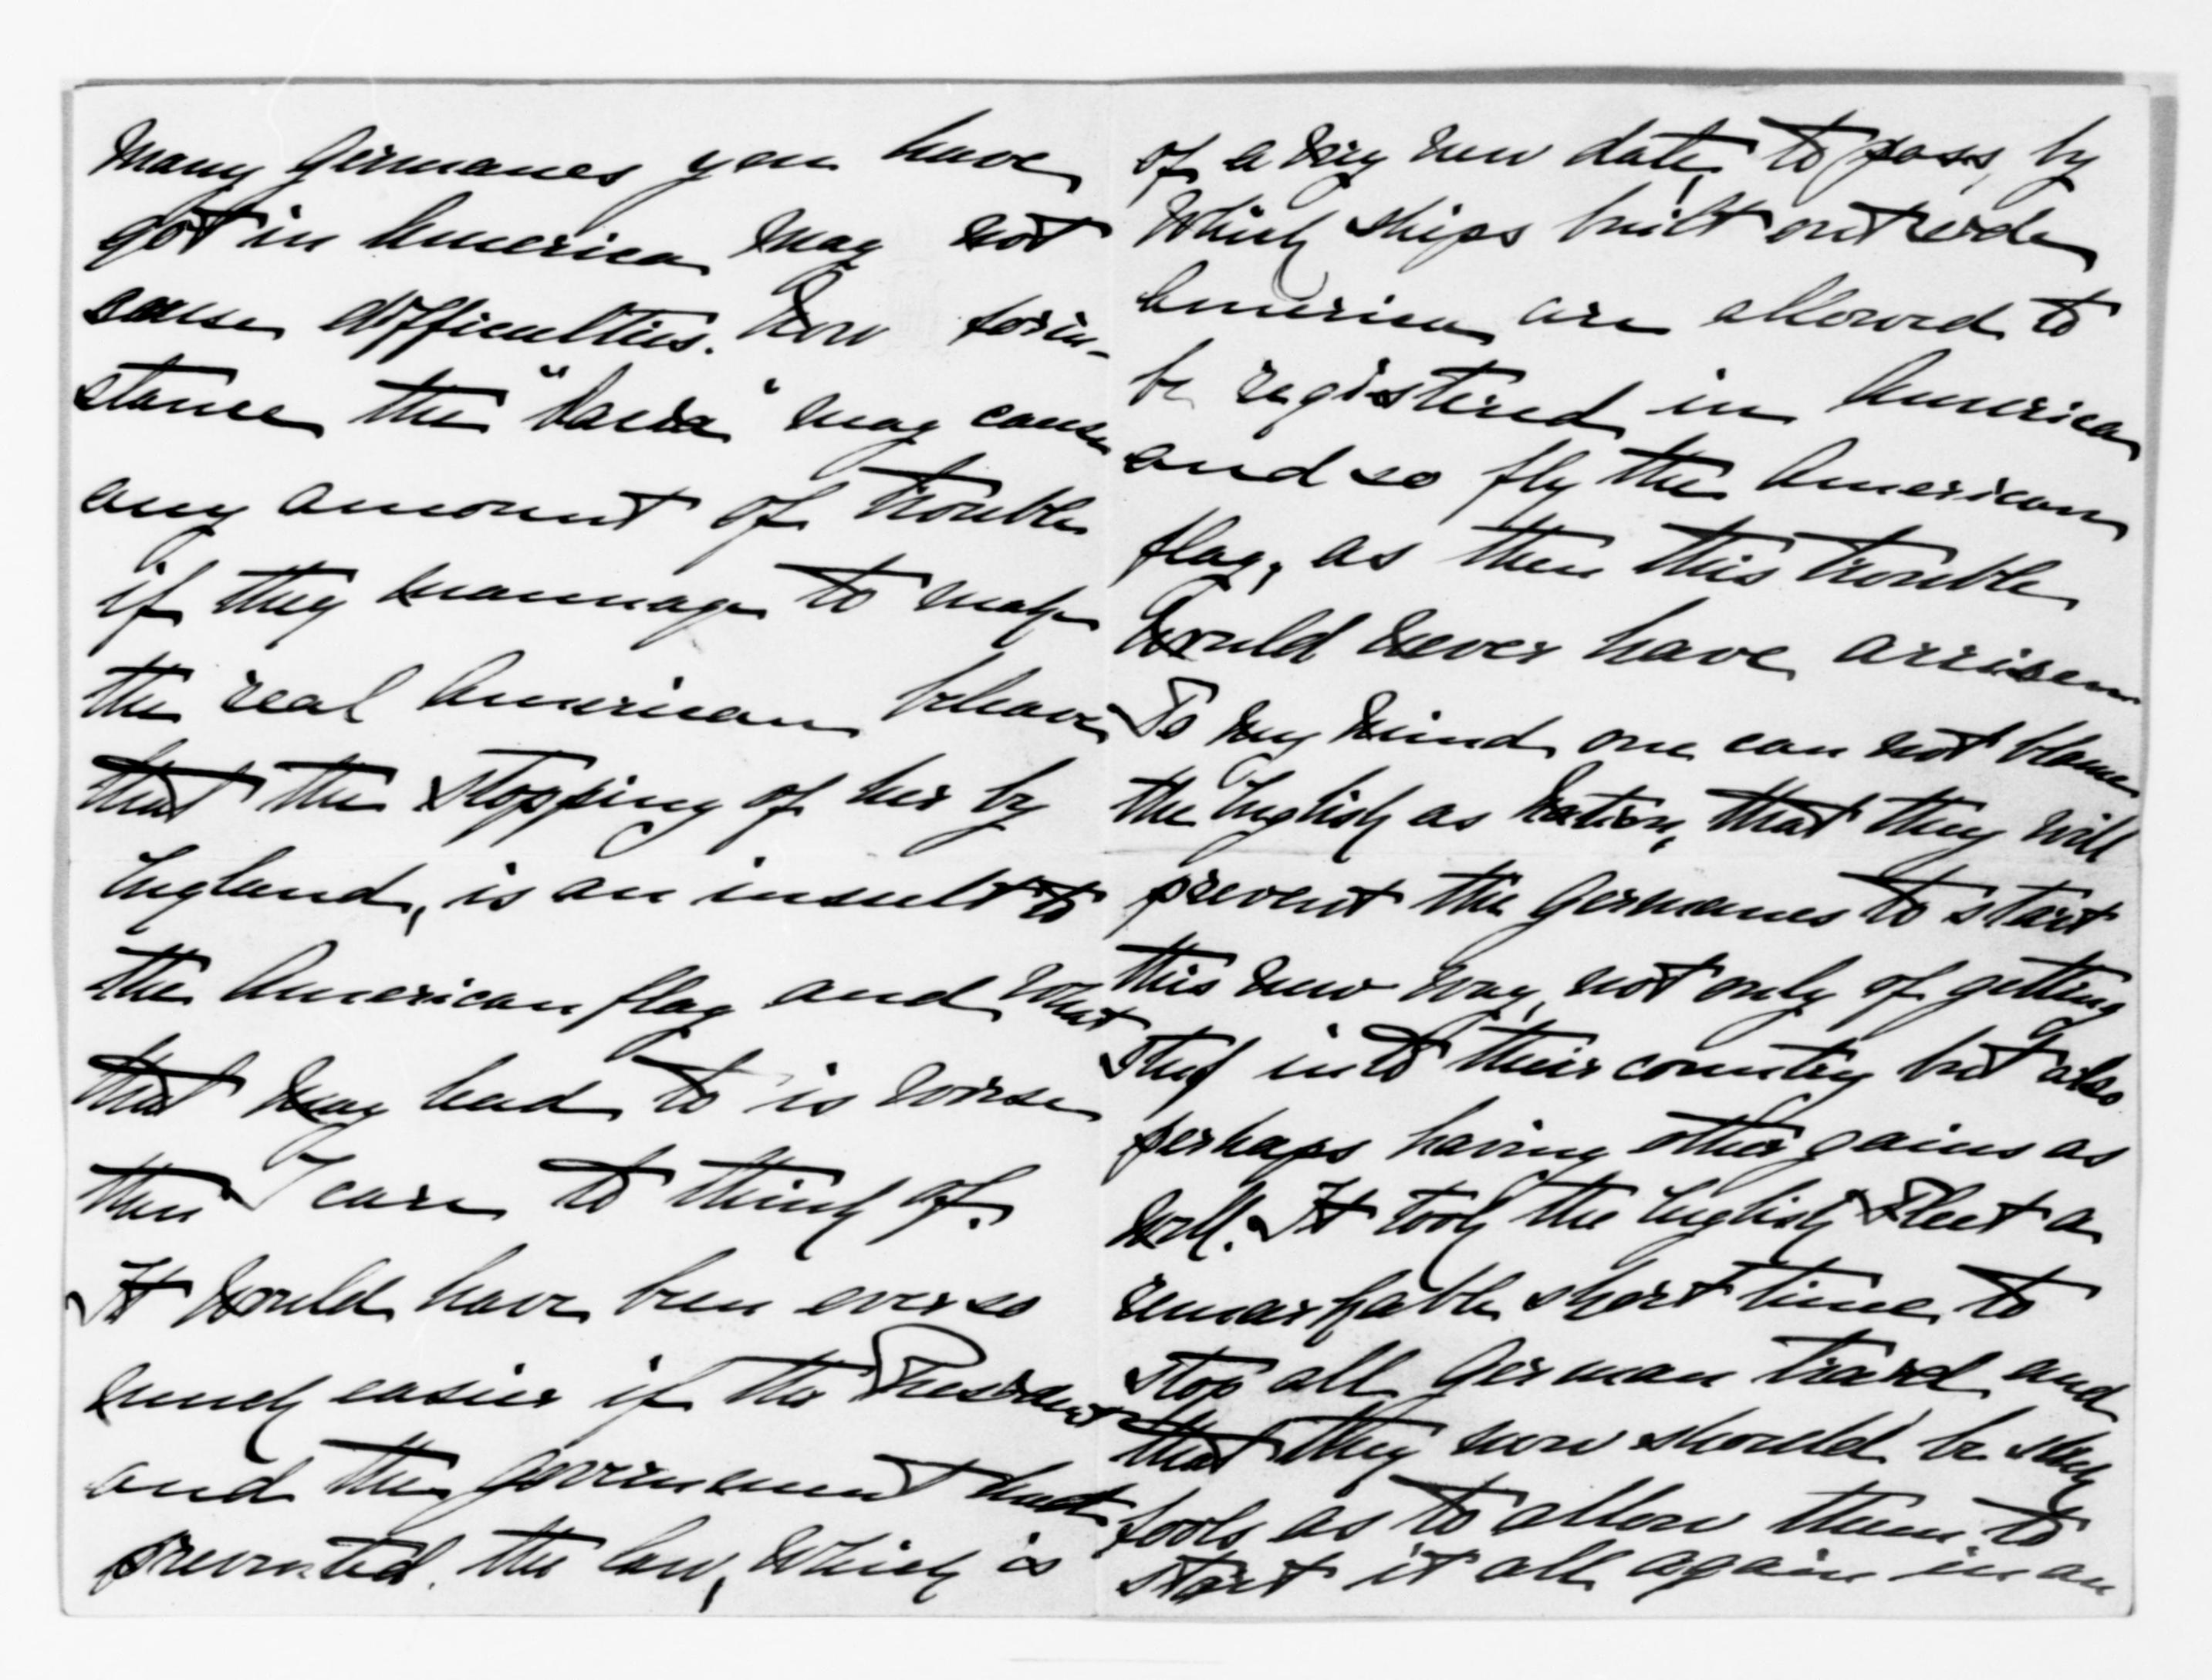 many Germanes you have
got in America may not
cause difficulties. Now forin-
stance the "Dacia" may cause
any amount of trouble
if they mannage to make
the real American beleave
that the stopping of her by
England, is an insult to
the American flag and what
that may lead to is worse
then I care to think of.
It would have been ever so
much easier if the President
and the government had
prevented the law, which is
of a very new date, to pass, by
which ships built outside
America are allowed to
be registered in America
and so fly the American
flag, as then this trouble
would never have arrisen.
To my mind one can not blame
the English as nation, that they will
prevent the Germanes to start
this new way, not only of getting
stuf into their country but also
perhaps having other gains as
well. It took the English Fleet a
remarkable short time to
stop all German traid and
that they now should be such
fools as to allow them to
start it all again in an